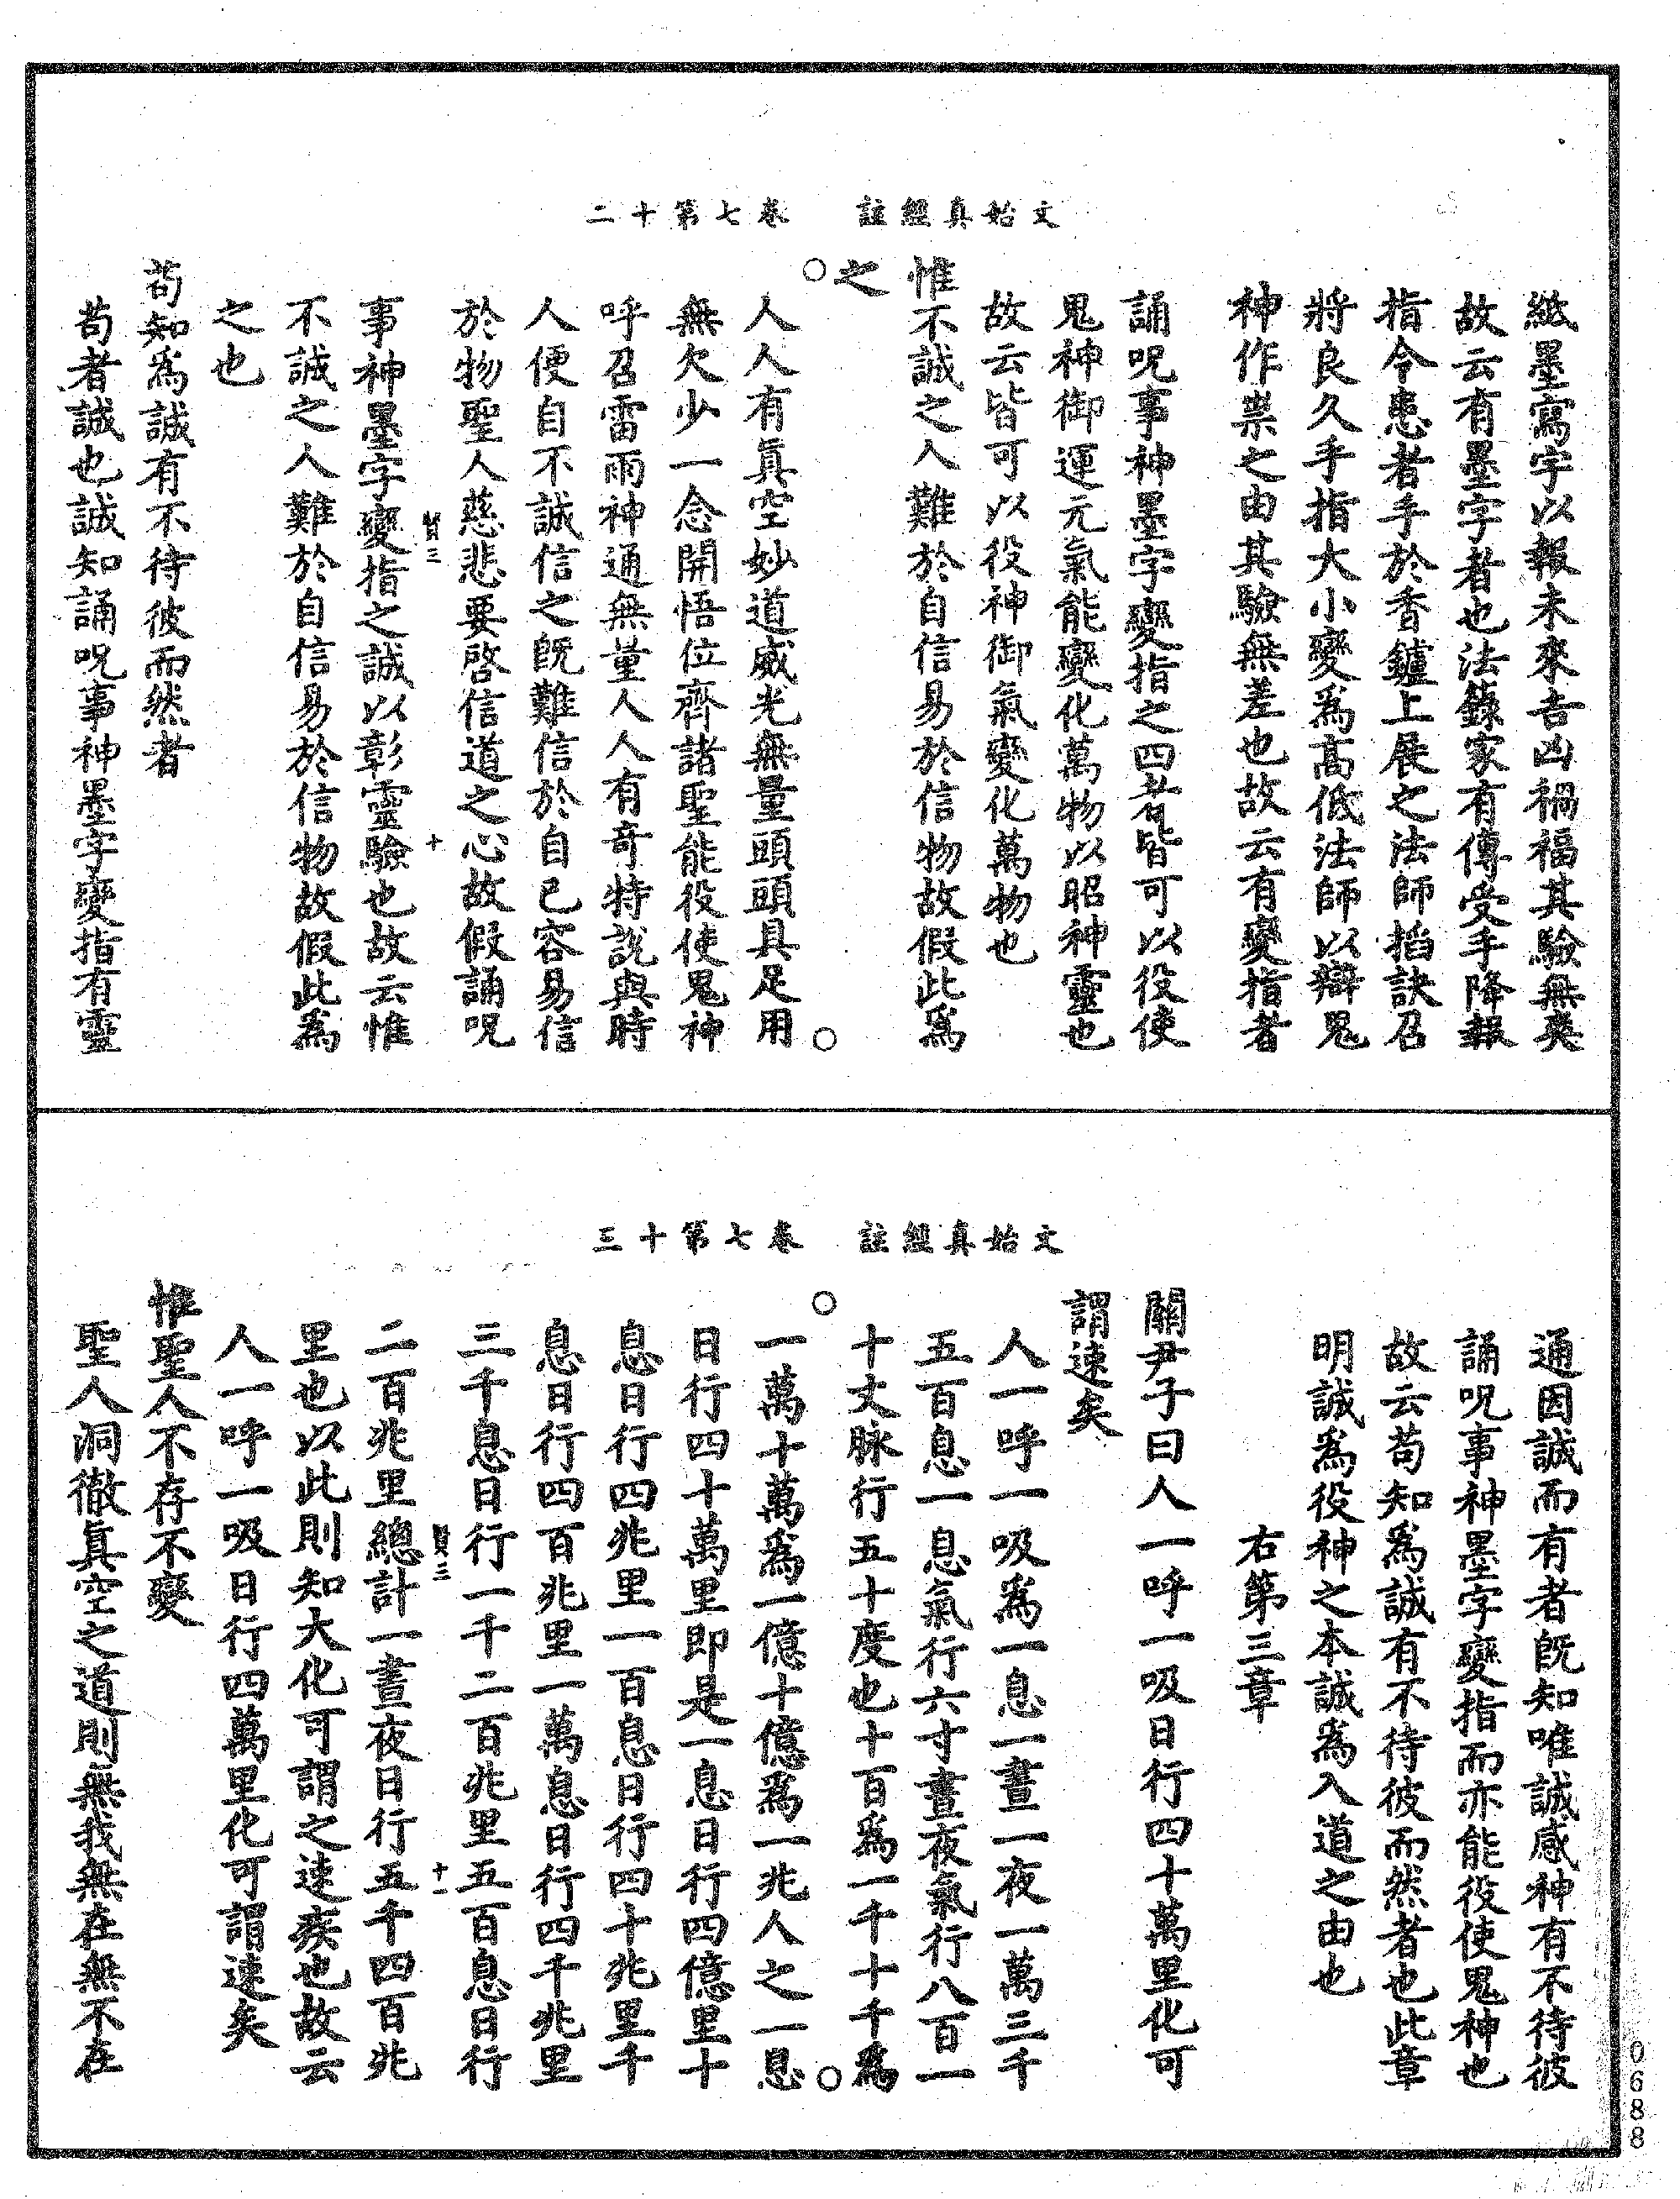 文始真經註　卷七第十二
紙墨寫字以報未來吉凶禍福其驗無爽
故云有墨字者也法籙家有傳受手降報
指令患者手於香鑪上展之法師掐訣召
將良久手指大小變爲高低法師以辯鬼
神作祟之由其驗無差也故云有變指者
誦呪事神墨字變指之四者皆可以役使
鬼神御運元氣能變化萬物以昭神靈也
故云皆可以役神御氣變化萬物也
惟不誠之人難於自信易於信物故假此爲
之
人人有真空妙道威光無量頭頭具足用
無欠少一念開悟位齊諸聖能役使鬼神
呼召雷雨神通無量人人有奇特說與時
人便自不誠信之既難信於自已容易信
於物聖人慈悲要啓信道之心故假誦呪
賢三　十
事神墨字變指之誠以彰靈驗也故云惟
不誠之人難於自信易於信物故假此爲
之也
苟知爲誠有不待彼而然者
苟者誠也誠知誦呪事神墨字變指有靈
文始真經註　卷七第十三
通因誠而有者既知唯誠感神有不待彼
誦呪事神墨字變指而亦能役使鬼神也
故云苟知爲誠有不待彼而然者也此章
明誠爲役神之本誠爲入道之由也
右第三章
關尹子曰人一呼一吸日行四十萬里化可
謂速矣
人一呼一吸爲一息一晝一夜一萬三千
五百息一息氣行六寸晝夜氣行八百一
十丈脉行五十度也十百爲一千十千爲
一萬十萬爲一億十億爲一兆人之一息
日行四十萬里即是一息日行四億里十
息日行四兆里一百息日行四十兆里千
息日行四百兆里一萬息日行四千兆里
三千息日行一千二百兆里五百息日行
賢三　十一
二百兆里總計一晝夜日行五千四百兆
里也以此則知大化可謂之速疾也故云
人一呼一吸日行四萬里化可謂速矣
惟聖人不存不變
聖人洞徹真空之道則無我無在無不在
0688